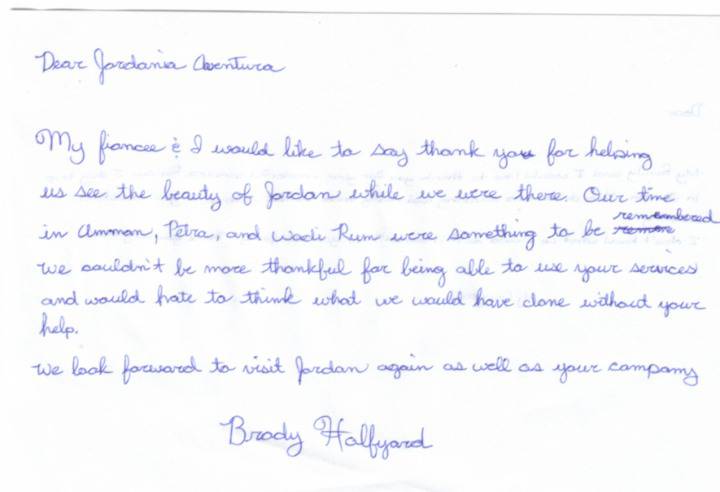 Dear Jordania Aventura
My fiancee & I would like to say thank you for helping
us see the beauty of Jordan while we were there. Our time
in Amman, Petra, and Wadi Rum were something to be remembered
we couldn't be more thankful for being able to use your services
and would hate to think what we would have done without your
help.
We look forward to visit Jordan again as well as your company
Brady Halfyard